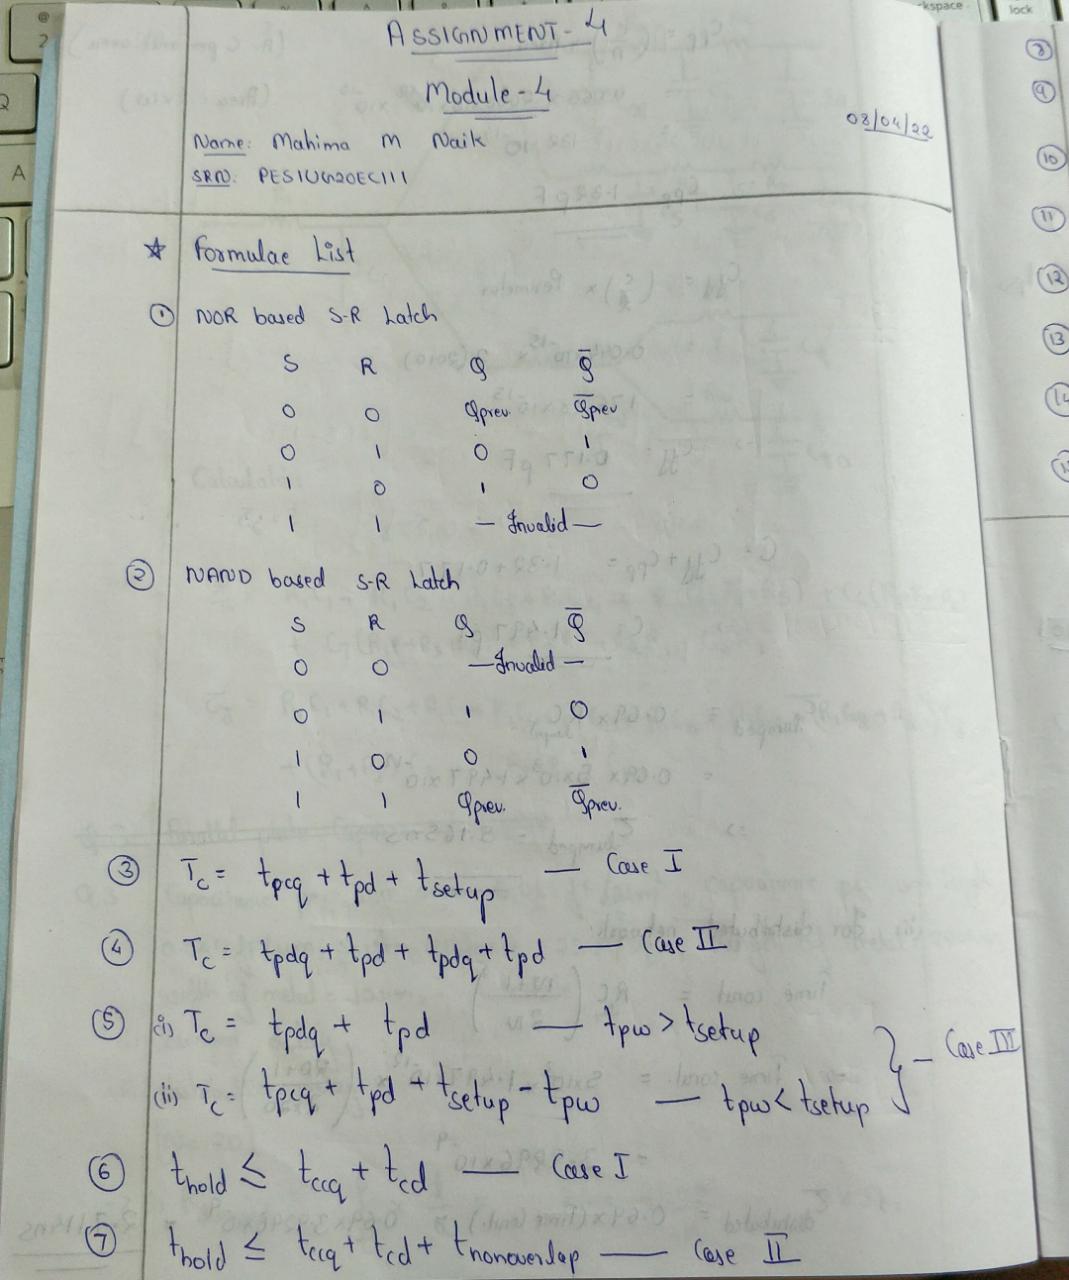 ASSIGNMENT-4
Module-4
Name: Mahima M Naik
03/04/22
SRN: PES1UG20EC111
☆ Formulae List
① NOR based S-R Latch
S R Q Q̅
0 0 Qprev. Q̅prev
0 1 0 1
1 0 1 0
1 1 — Invalid —
② NAND based S-R Latch
S R Q Q̅
0 0 — Invalid —
0 1 1 0
1 0 0 1
1 1 Qprev. Q̅prev.
③ Tc = tpcq + tpd + tsetup — Case I
④ Tc = tpdq + tpd + tpdq + tpd — Case II
⑤ (i) Tc = tpdq + tpd — tpw > tsetup
} — Case III
(ii) Tc = tpcq + tpd + tsetup - tpw — tpw < tsetup
⑥ thold ≤ tccq + tcd — Case I
⑦ thold ≤ tccq + tcd + tnonoverlap — Case II
⑧
⑨
⑩
⑪
⑫
⑬
kspace
lock
@
2
A